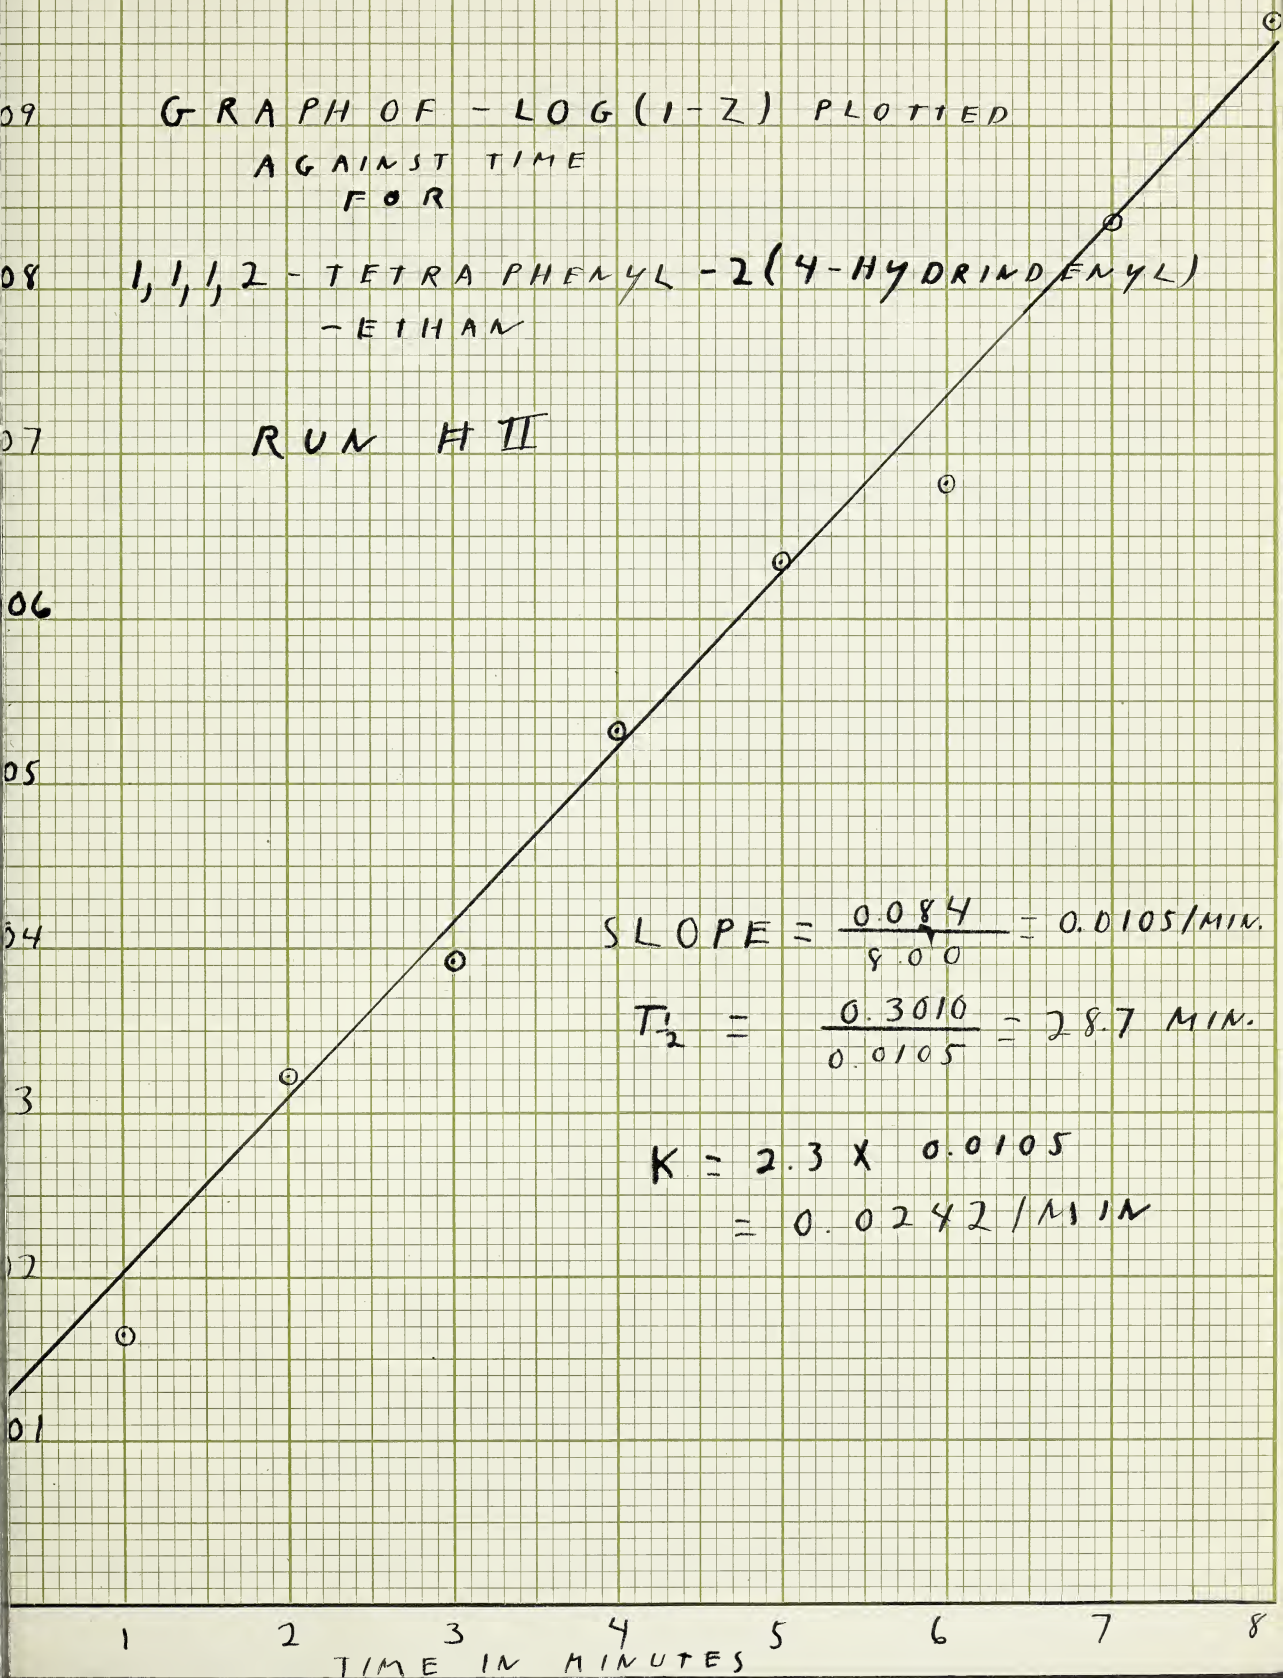 GRAPH OF -LOG(1-Z) PLOTTED
AGAINST TIME
FOR
1,1,1,2-TETRAPHENYL-2(4-HYDRINDENYL)
-ETHAN
RUN H II
09
08
07
06
05
04
3
2
01
SLOPE = 0.084 / 8.00 = 0.0105/MIN.
T½ = 0.3010 / 0.0105 = 28.7 MIN.
K = 2.3 X 0.0105
= 0.0242/MIN
1 2 3 4 5 6 7 8
TIME IN MINUTES